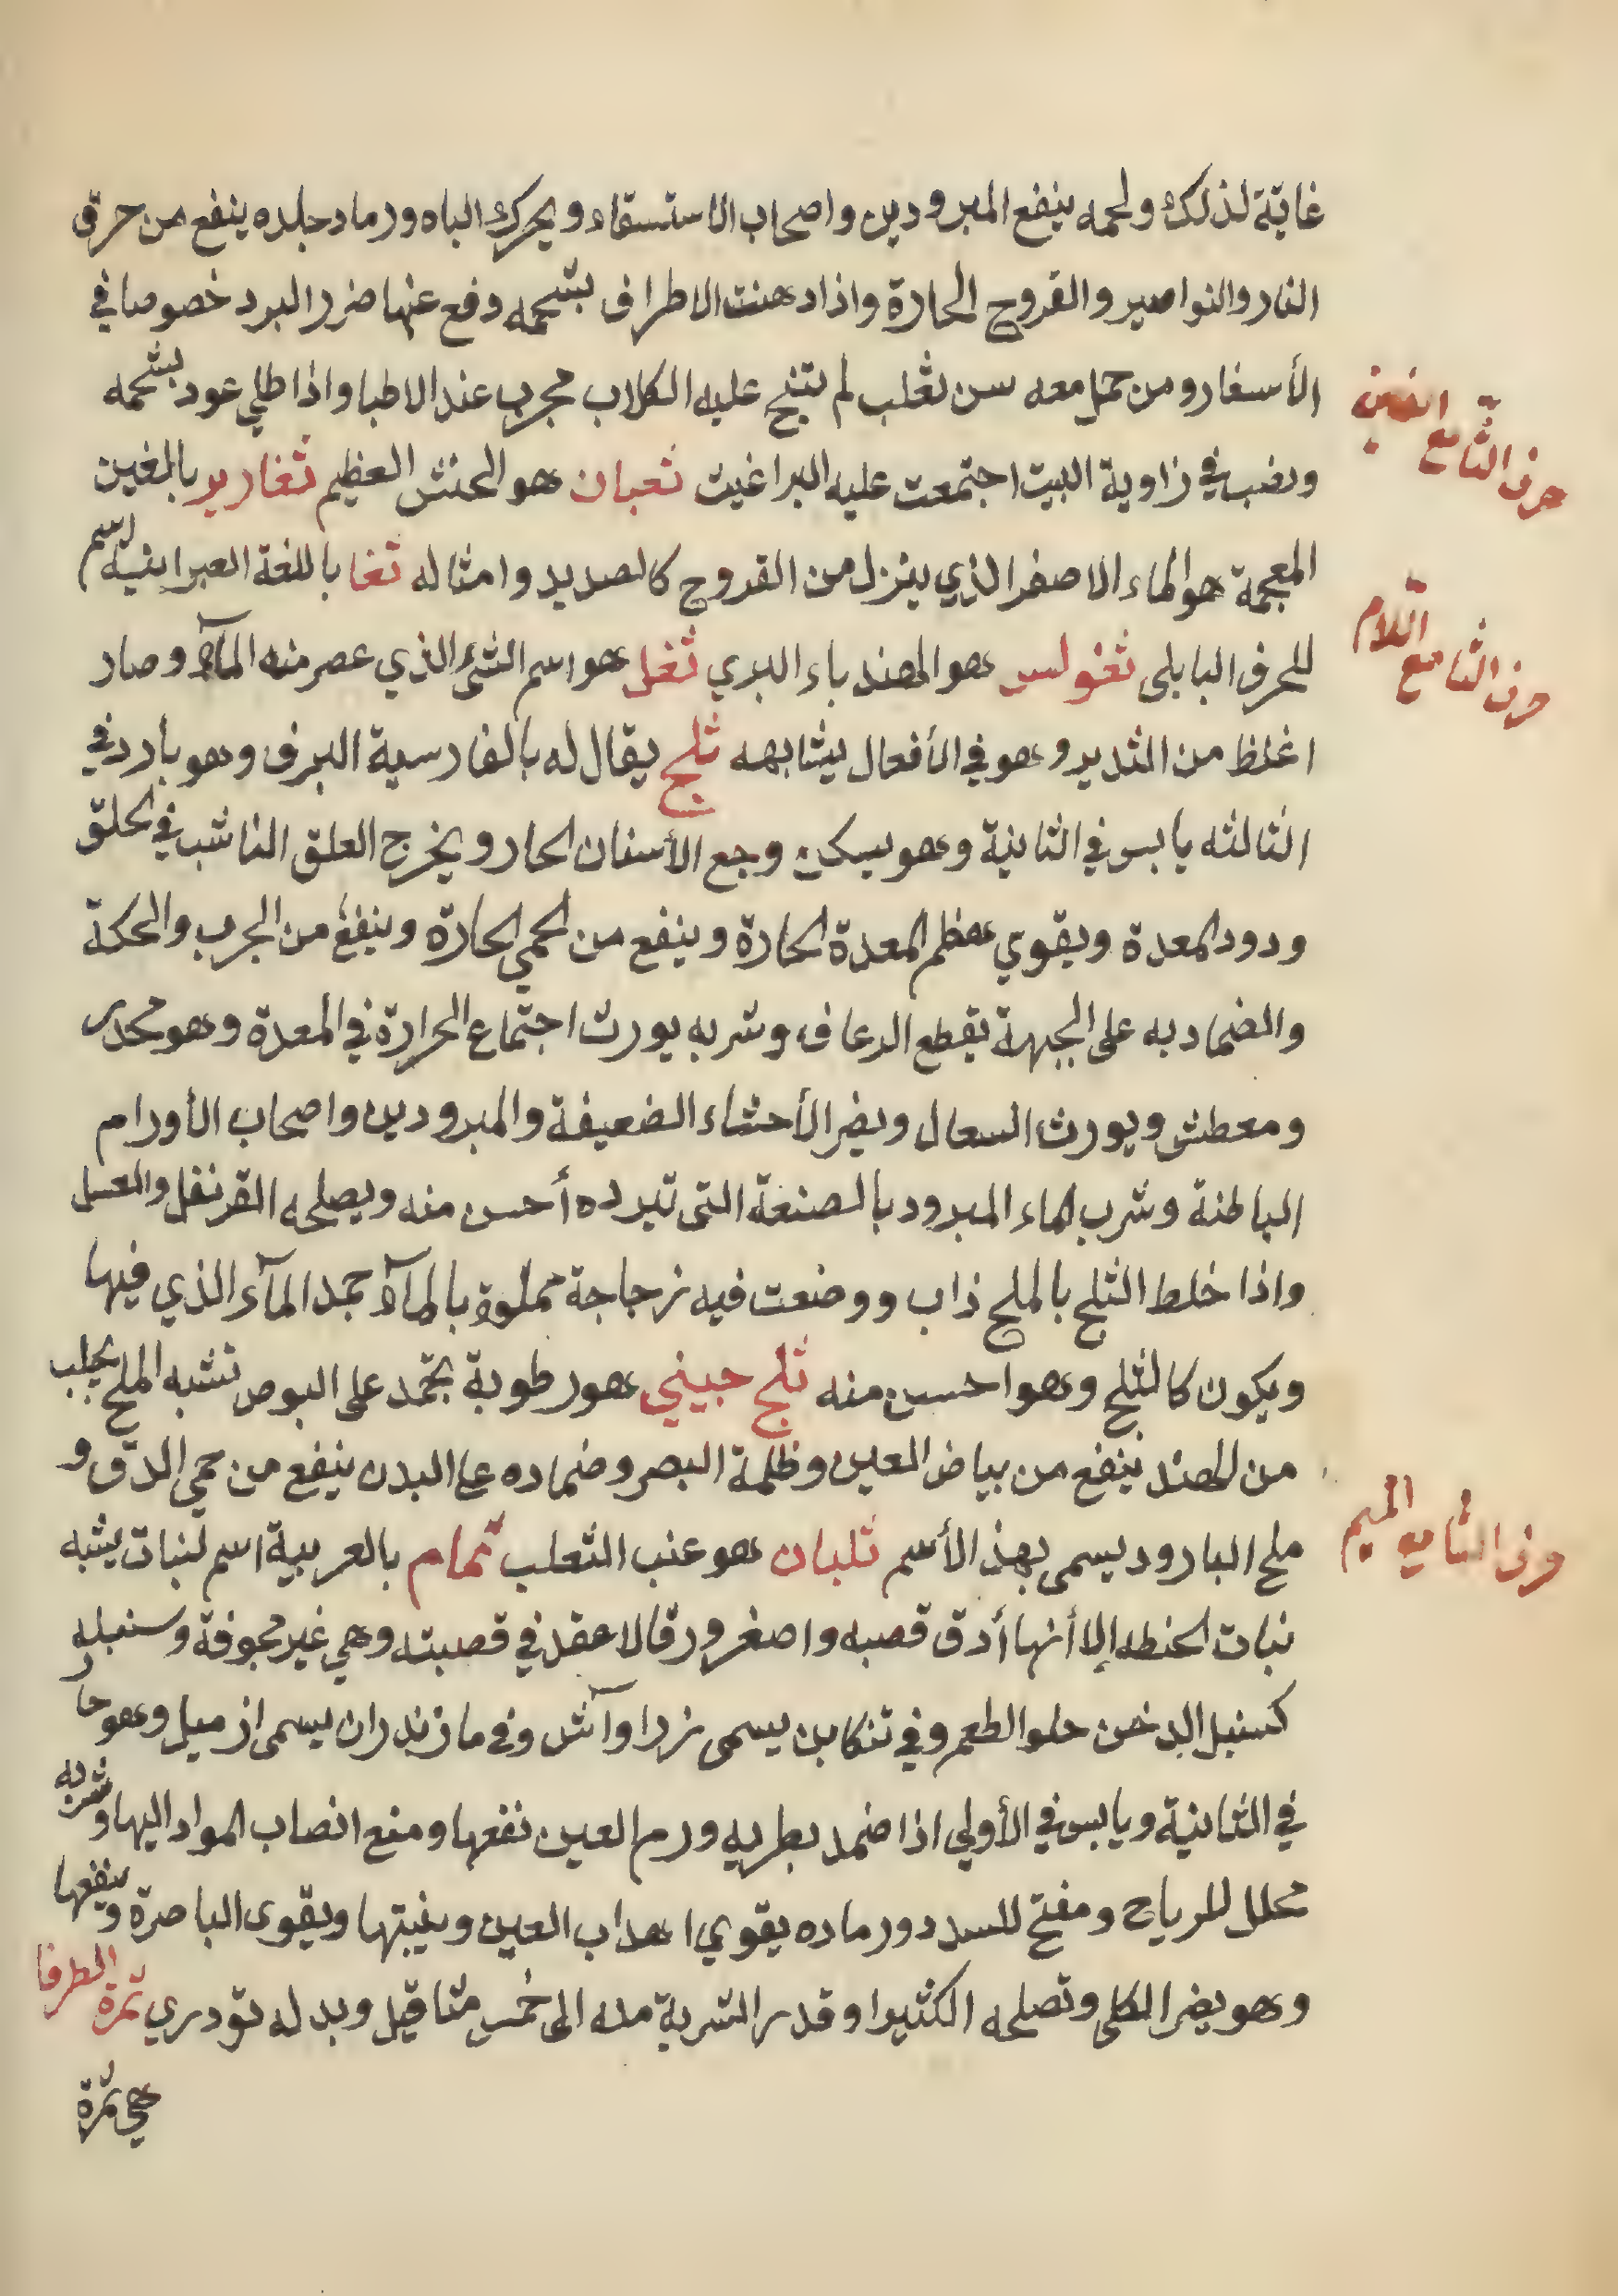 غاية لذلك ولحمه ينفع المبرودين واصحاب الاستسقاء ويحرك الباه ورماد جلده ينفع من حرق
النار والنواصير والقروح الحارة واذا دهنت الاطراف بشحمه دفع عنها ضرر البرد خصوصا في
الأسفار ومن حمل معه سن ثعلب لم تنبح عليه الكلاب مجرب عند الاطبا واذا طلي عود بشحمه
ونصب في زاوية البيت اجتمعت عليه البراغيث ثعبان هو الحنش العظيم ثغارير بالغين
المعجمة هو الماء الاصفر الذي ينزل من القروح كالصديد وامثاله ثغا باللغة العبرانية اسم
للحرف البابلى ثغولس هو الهندباء البري ثغل هو اسم الشئ الذي عصر منه المآء وصار
اغلظ من الثدير وهو في الأفعال يشابهه ثلج يقال له بالفارسية البرف وهو بارد في
الثالثه يابس في الثانية وهو يسكن وجع الأسنان الحار ويخرج العلق الناشب في الحلق
ودود المعدة ويقوي هظم المعدة الحارة وينفع من الحمي الحارة وينفع من الجرب والحكة
والضماد به على الجبهة يقطع الرعاف وشربه يورث اجتماع الحرارة في المعدة وهو مخدر
ومعطش ويورث السعال ويضر الأحشاء الضعيفة والمبرودين واصحاب الأورام
الباطنة وشرب الماء المبرود بالصنعة التى تبرده أحسن منه ويصلحه القرنفل والعسل
واذا خلط الثلج بالملح ذاب ووضعت فيه زجاجة مملوة بالمآء جمد المآء الذي فيها
ويكون كالثلج وهو احسن منه ثلج جيني هو رطوبة تجمد على البوص تشبه الملح يجلب
من الهند ينفع من بياض العين وظلمة البصر وضماده على البدن ينفع من حمي الدق و
ملح البارود يسمى بهذ الأسم ثلبان هو عنب الثعلب ثمام بالعربية اسم لنبات يشبه
نبات الحنطه إلا أنها أدق قصبه واصغر ورقا لا عقد في قصبته وهي غير مجوفة وسنبله
كسنبل الدخن حلو الطعم وفي تنكابن يسمى زدا وآش وفي مازندران يسمى ازميل وهو حار
في الثانية ويابس في الأولي اذا ضمد بطريه ورم العين نفعها ومنع انصاب المواد اليها وشربه
محلل للرياح ومفتح للسدد ورماده يقوي اهداب العين وينبتها ويقوى الباصرة وينفعها
وهو يضر الكلى وتصلحه الكثيرا وقدر الشربة منه الى خمس مثاقيل وبدله تودري ثمرة الطرفا
هي ثمرة
حرف الثا مع الغين
حرف الثا مع اللام
حرف الثا مع الميم